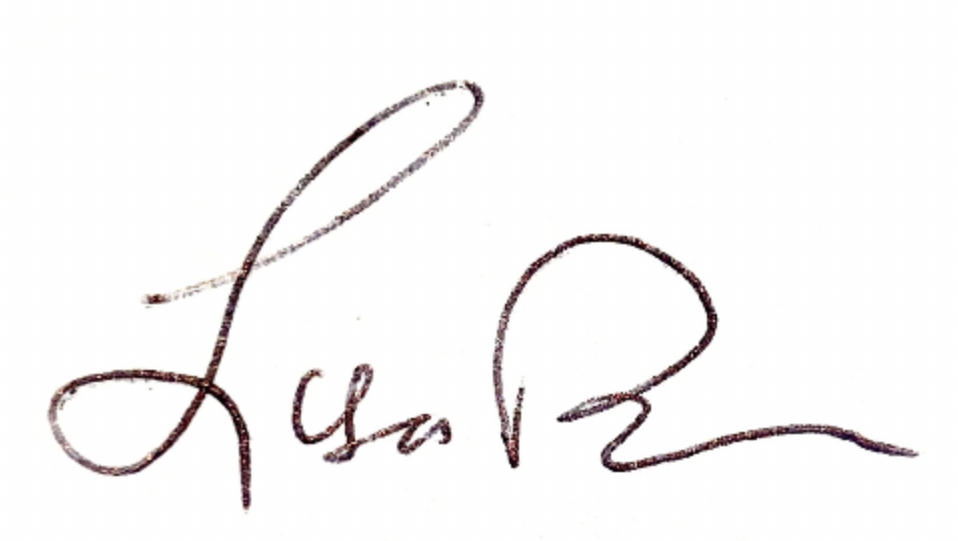 Lisa R